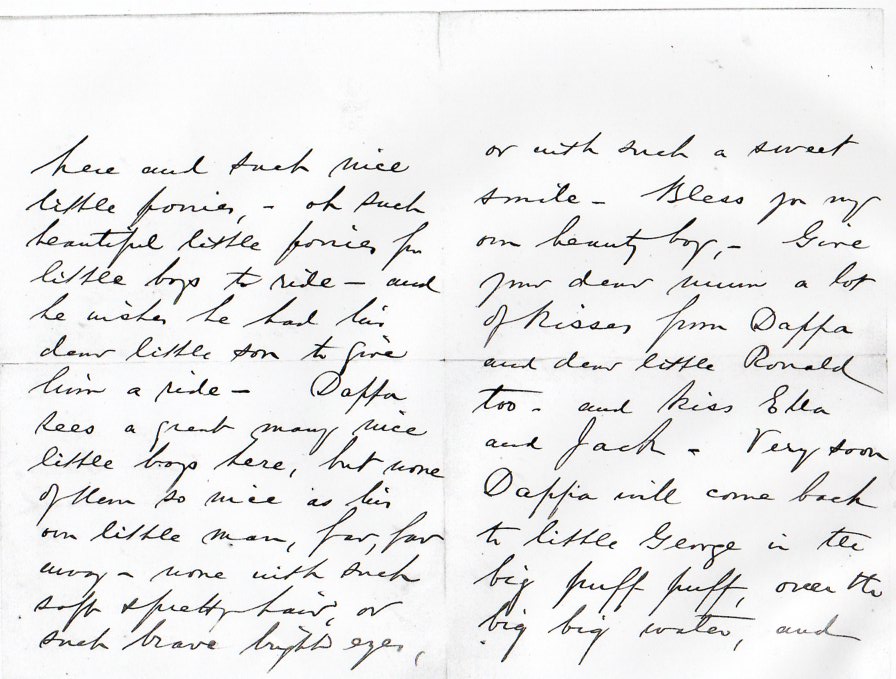 here and such nice
little ponies, - oh such
beautiful little ponies for
little boys to ride - and
he wishes he had his
dear little son to give
him a ride - Dappa
sees a great many nice
little boys here, but none
of them so nice as his
own little man, far, far
away - none with such
soft & pretty hair, or
such brave bright eyes,
or with such a sweet
smile - Bless you my
own beauty boy, - Give
your dear mum a lot
of kisses from Dappa
and dear little Ronald
too - and kiss Ella
and Jack - Very soon
Dappa will come back
to little George in the
big puff puff, over the
big big water, and